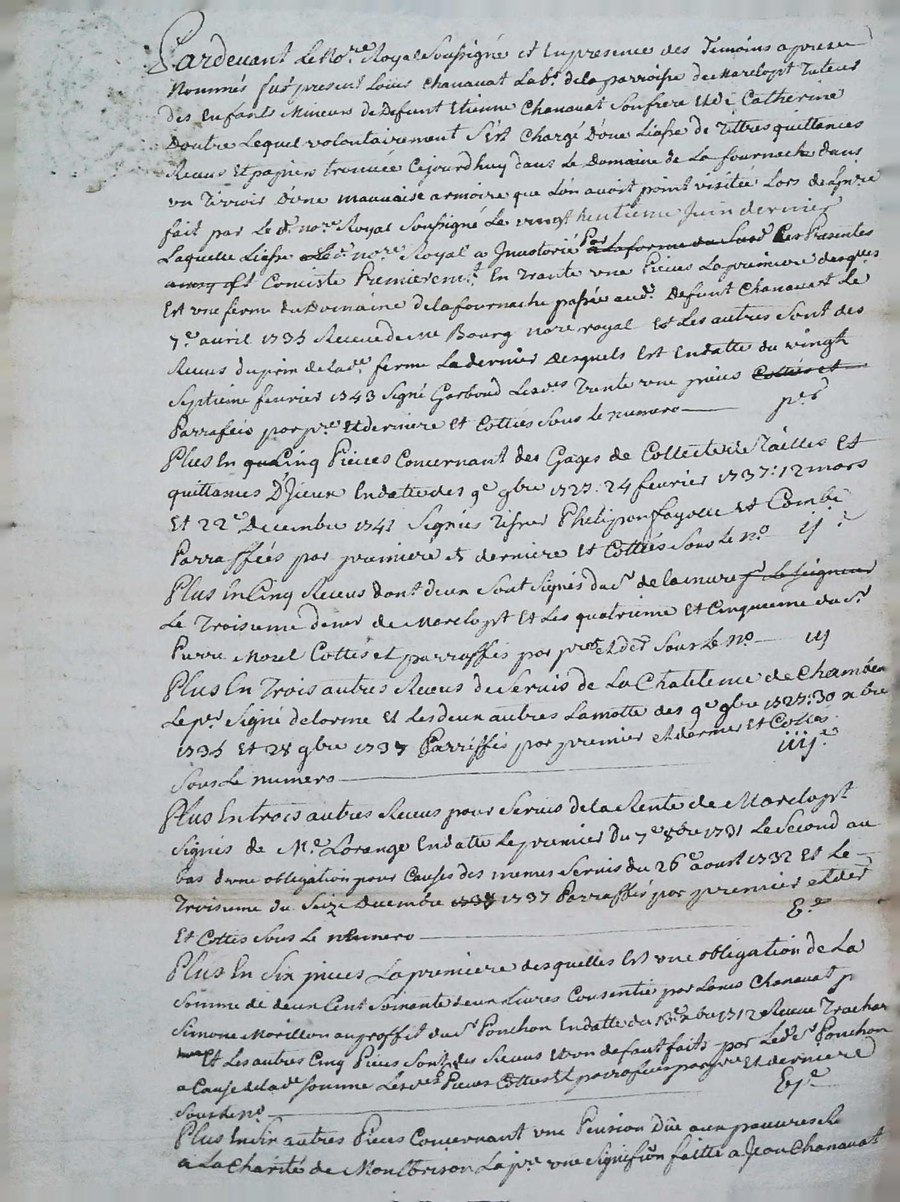 Pardevant Le No.re Royal Soussigné et En presence des Temoins apres
Nommés fut present Louis Chanavat Lab.r de la parroisse de Marclopt Tuteur
des Enfants Mineurs de Defunt Etienne Chanavat Son frere Et de Catherine
Doutre Lequel volontairement S'est Chargé D'une Liasse de Tittres quittances
Receus Et papiers trouvée Cejourdhuy dans Le Domaine de La fournache dans
un Tirroir D'une mauvaise armoire que L'on avoit point visitée Lors de
fait par Le d.t no.re Royal Soussigné Le vingt huitieme Juin dernier
Laquelle Liasse Led. no.re Royal a Inventorié Par Ces Presentes
Et Consiste Premierem.t En Trante une Pieces La premiere desquelles
Est une ferme du Domaine de la fournache passée aud. Defunt Chanavat Le
7.e avril 1735 Receue de Me Bourg no.re royal Et Les autres Sont des
Receus du prix de lad.e ferme La dernier desquels Est En datte du vingt
Septieme fevrier 1743 Signé Lesd.es Trente une pieces
Parrafées par pr.e Et derniere Et Cottées Sous le numero — p.r
Plus En Cinq Pieces Concernant des Gages de Collecte de Tailles Et
quittances D'Jceux En datte des 9.e 9bre 1727: 24 fevrier 1737: 12 mars
Et 22.e Decembre 1741 Signées Philipon fayolle Et Combe
Parraffées par premiere et derniere Et Cottées Sous Le n.o ij.e
Plus En Cinq Receus dont deux Sont Signés du S.r de Lamure
Le Troisieme de Marclopt Et Les quatrieme Et Cinquieme du S.r
Pierre Morel Cottés et parraffés par pr. et der. Sous Le N.o — iij
Plus En Trois autres Receus de Servis de La Chatelenie de Chambeon
Le pr. Signé delorme Et Les deux autres Lamotte des 9.e 9bre 1727: 30 xbre
1735 Et 28 9bre 1737 Parraffés par premier et dernier Et Cottés
Sous Le numero — iiij.e
Plus En trois autres Receus pour Servis de La Rente de Marclopt
Signés de M.e Lorange En datte Le premier Du 7.e 8bre 1731 Le Second au
bas d'une obligation pour Causes des memes Servis du 26.e aoust 1732 Et Le
Troisieme du Seize Decembre 1737 Parraffés par premier et der
Et Cottés Sous Le numero —
Plus En Six pieces La premiere desquelles Est une obligation de La
Somme de deux Cent Soixante deux Livres Consentie par Louis Chanavat
Simone Morillon au proffit du S.r Ponchon En datte du xbre 1712 Receue
Et Les autres Cinq Pieces Sont des Receus Et un defaut faits par Led. S.r Ponchon
a Cause de lad. Somme Lesd. Pieces Cottées Et parrafées par pr.e Et derniere
Sous Le n.o —
Plus En Six autres Pieces Concernant une Pension Düe aux pauvres de
a La Charité de Montbrison La pr.e une faitte a Jean Chanavat